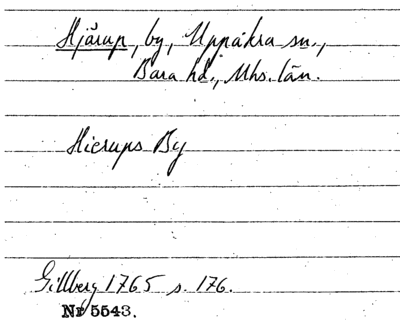 Hjärup, by, Uppåkra sn.,
Bara hd., Mhs. län.
Hierups By
Gillberg 1765 s. 176.
Nr 5543.